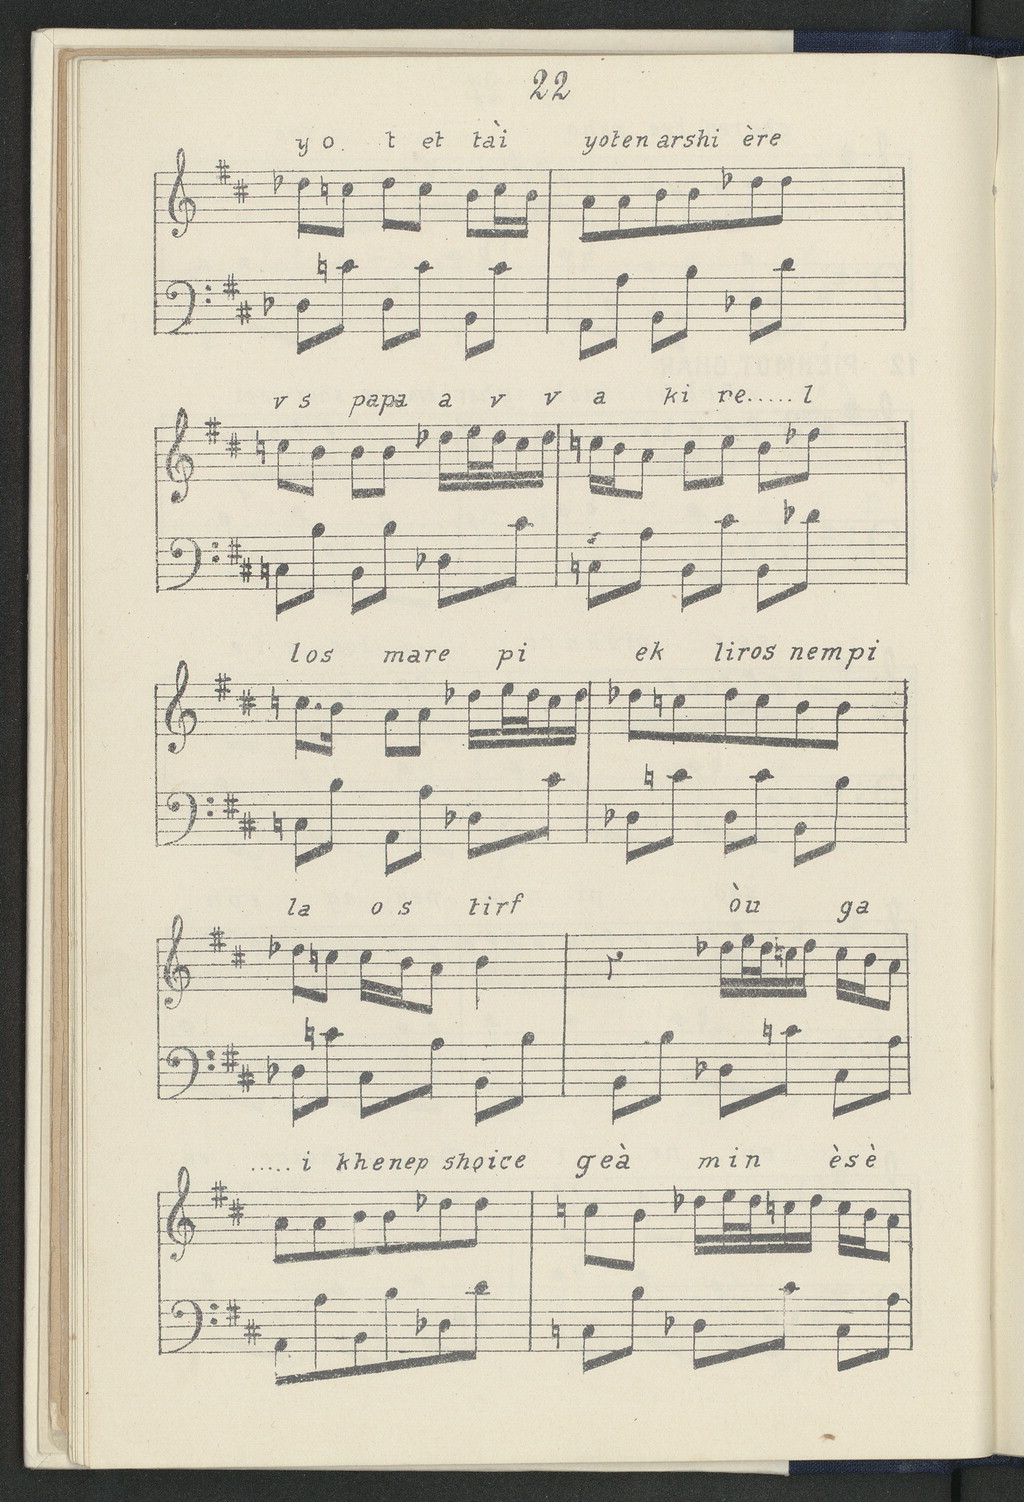 22
yo. t et tài yoten arshi ère
vs papa a v v a ki re.....l
los mare pi ek liros nempi
la os tirf òu ga
.....i khenep shoice geà min èsè